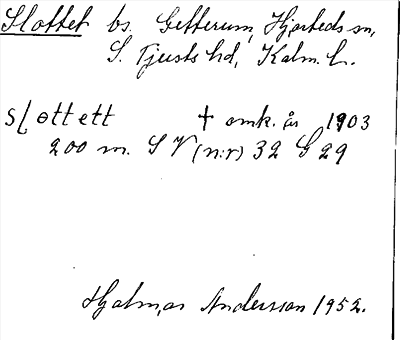 Slottet bs. Getterum, Hjorteds sn,
S. Tjusts hd, Kalm. L.
slottett † omk. år 1903
200 m. SV (n:r) 32 G 29
Hjalmar Andersson 1952.